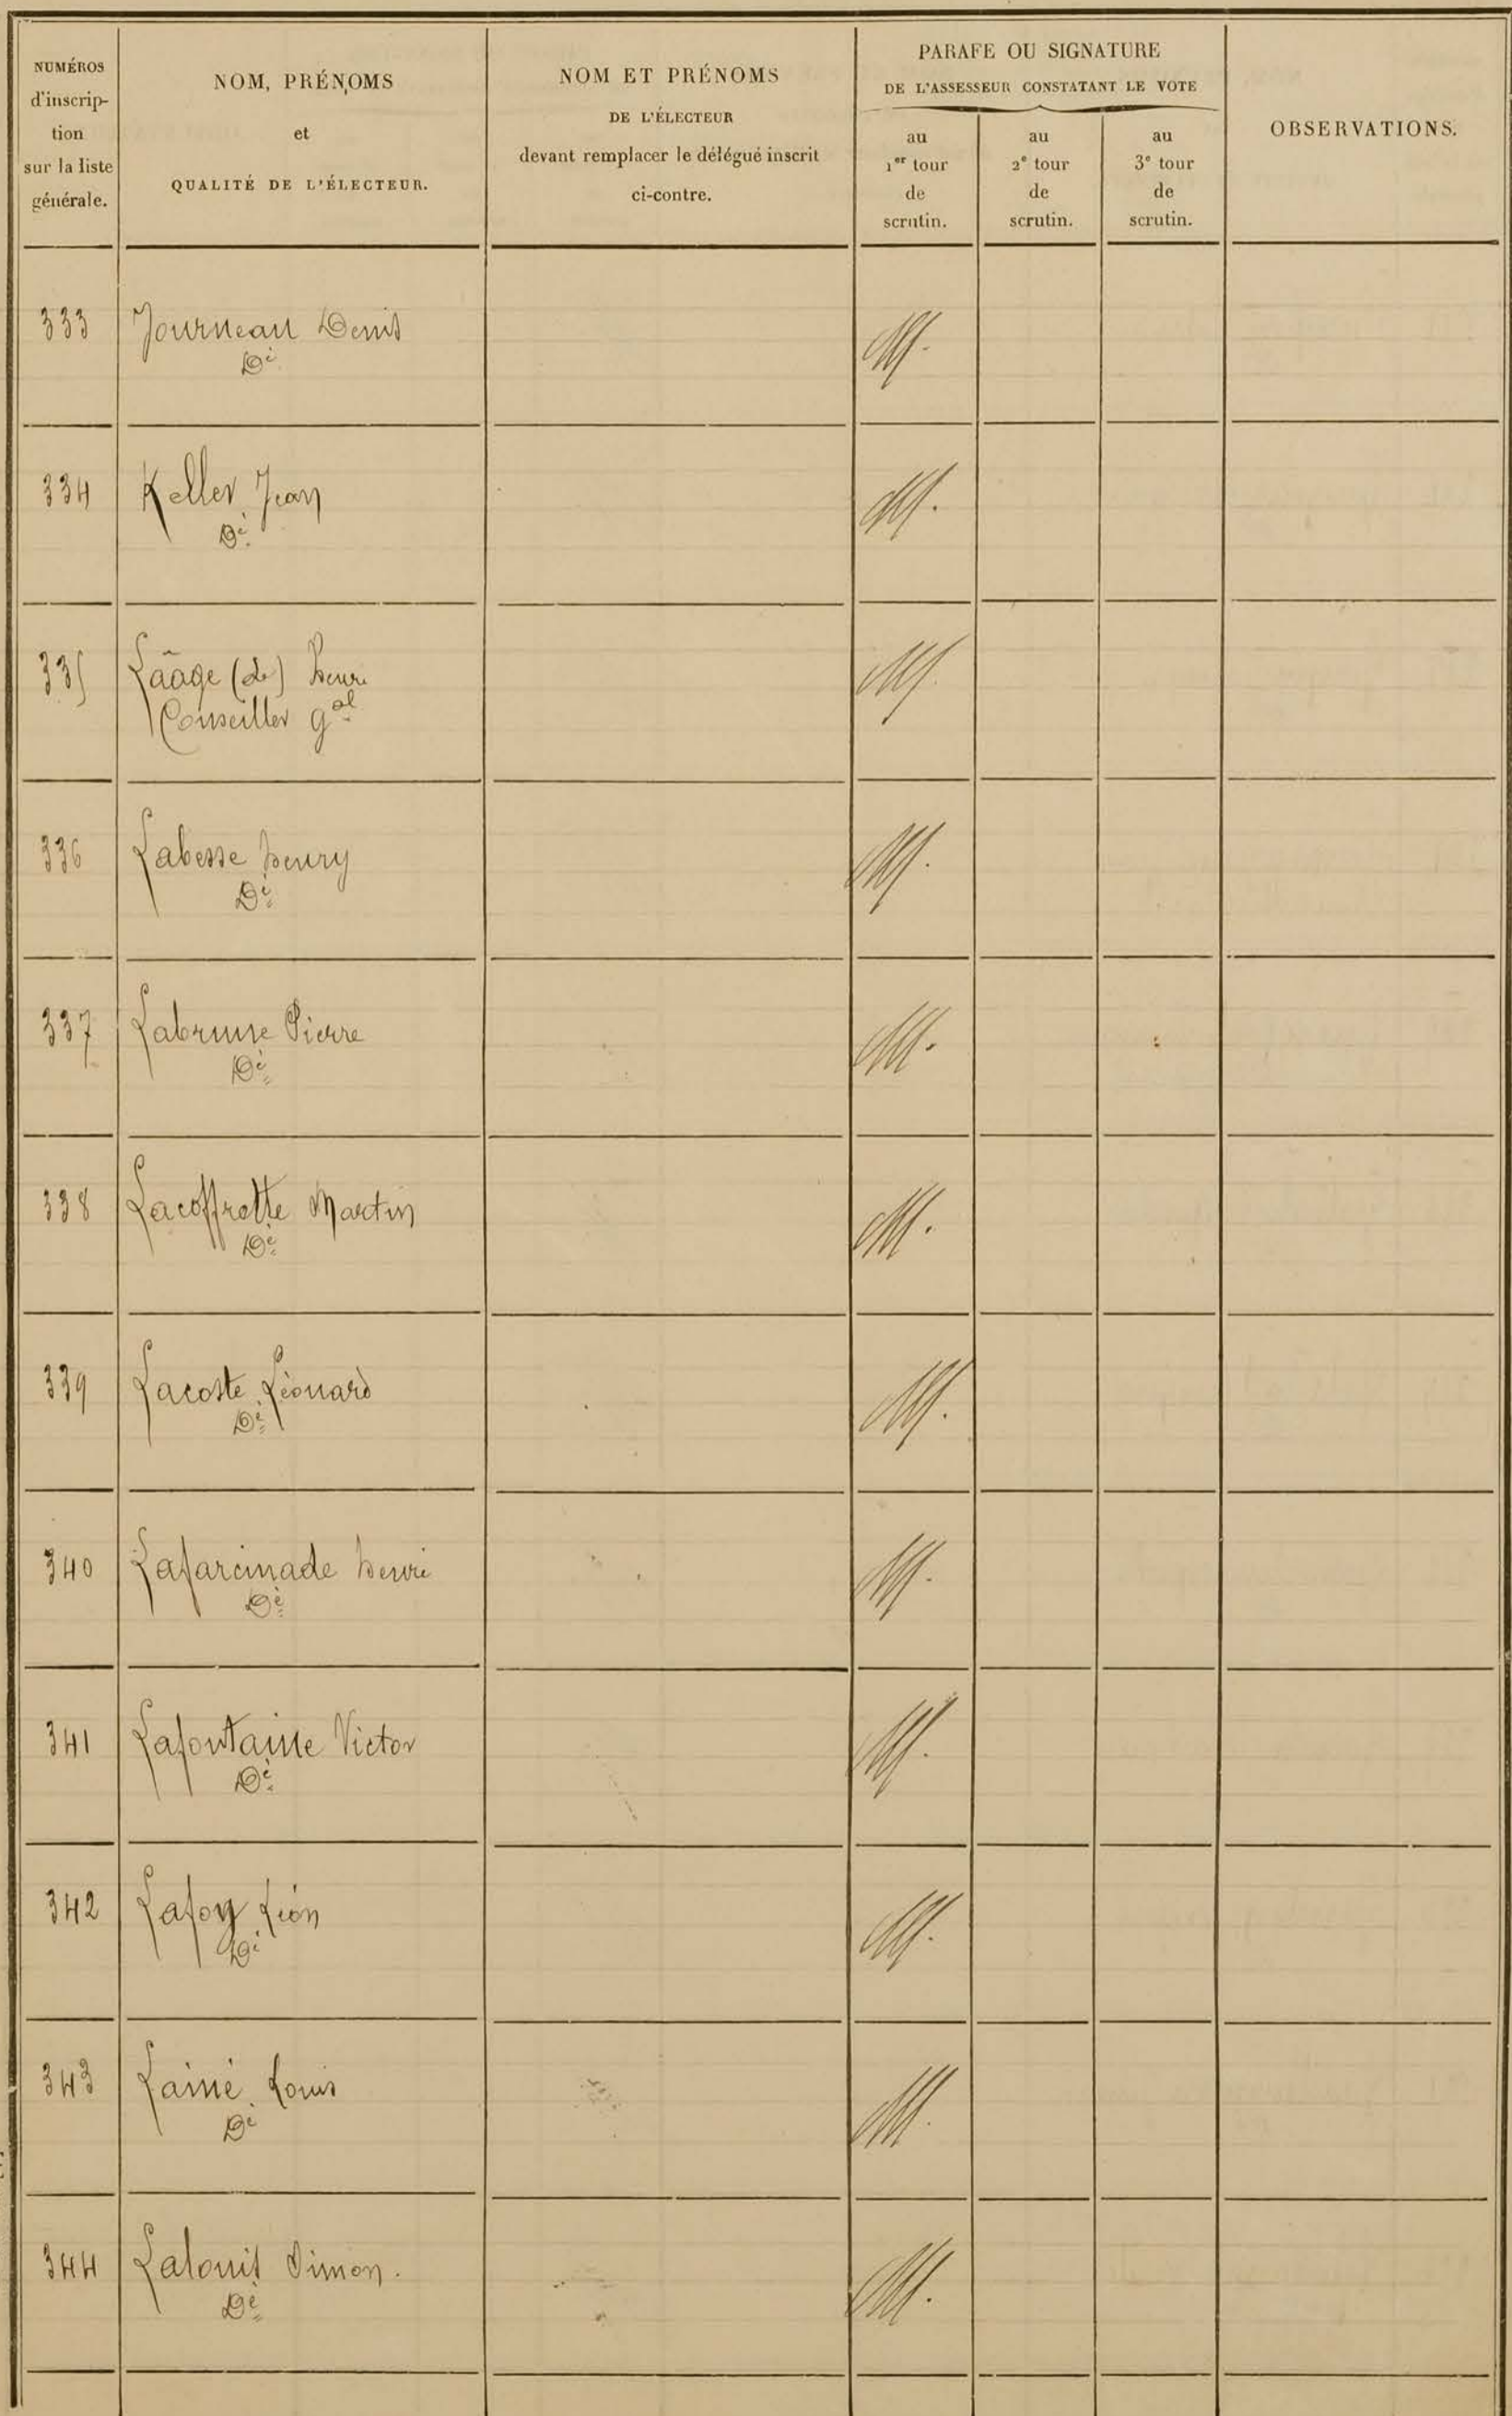 NUMÉROS
d'inscrip-
tion
sur la liste
générale.
NOM, PRÉNOMS
et
QUALITÉ DE L'ÉLECTEUR.
NOM ET PRÉNOMS
DE L'ÉLECTEUR
devant remplacer le délégué inscrit
ci-contre.
PARAFE OU SIGNATURE
DE L'ASSESSEUR CONSTATANT LE VOTE
au
1er tour
de
scrutin.
au
2e tour
de
scrutin.
au
3e tour
de
scrutin.
OBSERVATIONS.
333 Journeau Denis
Dé
334 Keller Jean
Dé
335 Laâge (de) henri
Conseiller gal
336 Labesse henry
Dé
337 Labrune Pierre
Dé
338 Lacoffrette Martin
Dé
339 Lacoste Léonard
Dé
340 Lafarcinade henri
Dé
341 Lafontaine Victor
Dé
342 Lafoy Léon
Dé
343 Lainé Louis
Dé
344 Lalouis Simon.
Dé